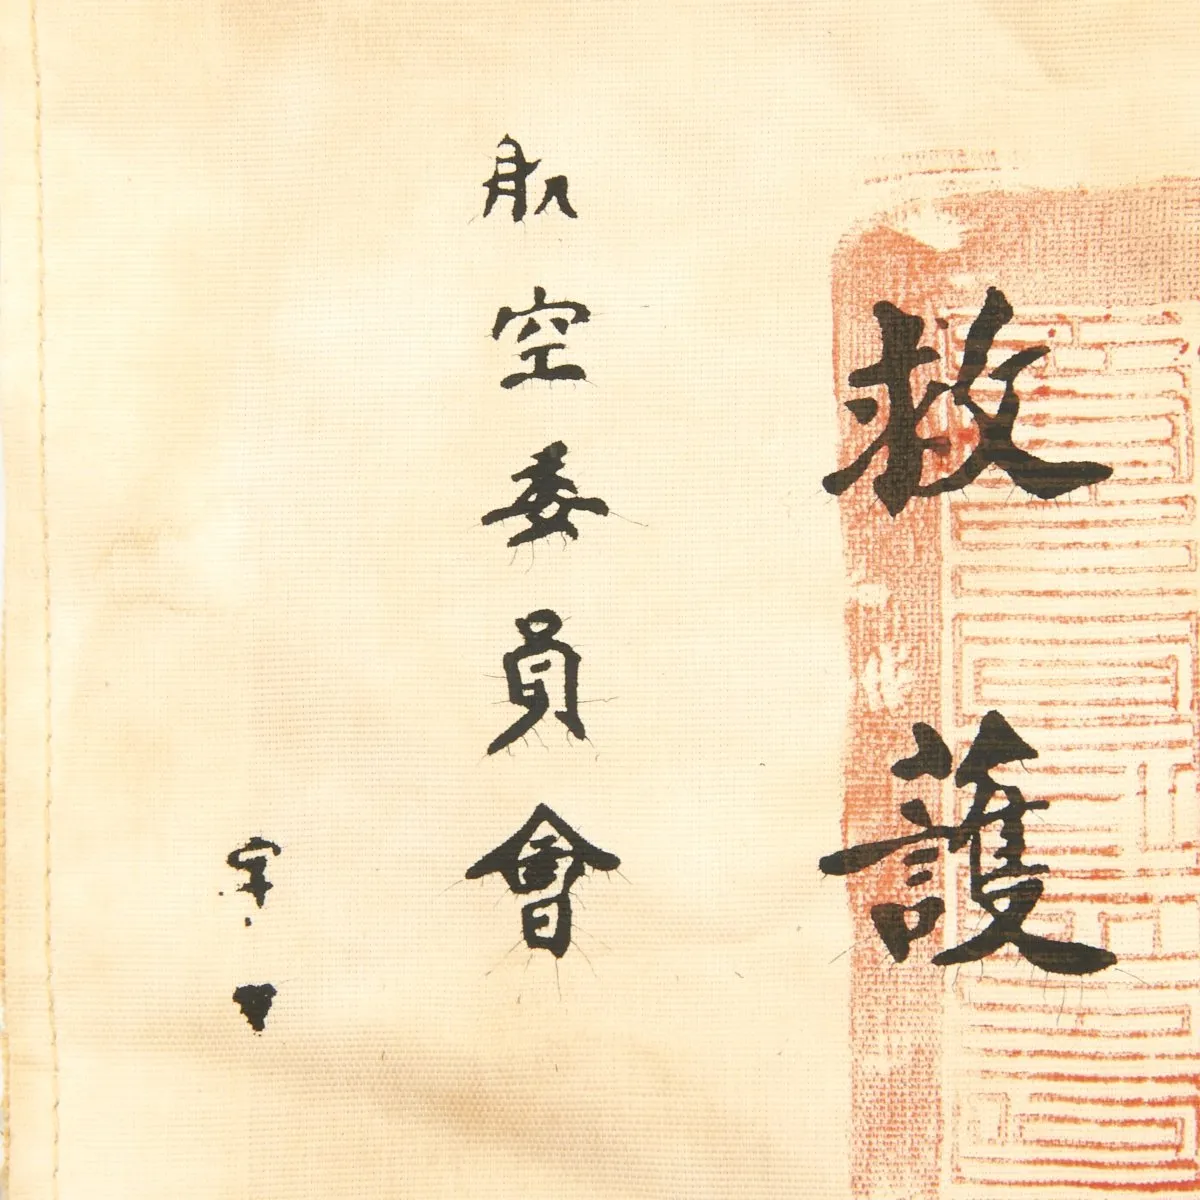 救護
航空委員會
字